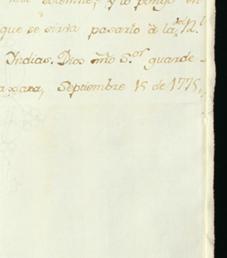 solemne; y lo pongo en
que se sirva pasarlo à la
Indias. Dios mño S.or guarde
axara, Septiembre 15 de 1775,